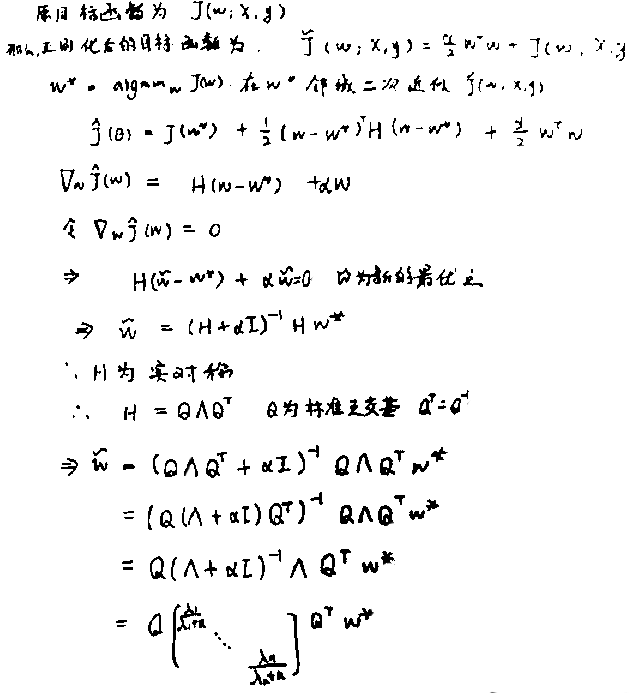 原目标函数为 J(w; X, y)
那么,正则化后的目标函数为. J̃(w; X, y) = α/2 wᵀw + J(w, X, y)
w* = argmin_w J(w) 在 w* 邻域二次近似 Ĵ(w, X, y)
Ĵ(θ) = J(w*) + 1/2 (w-w*)ᵀH(w-w*) + α/2 wᵀw
∇_w Ĵ(w) = H(w-w*) + αw
令 ∇_w Ĵ(w) = 0
⇒ H(w̃-w*) + αw̃=0 w̃为新的最优点
⇒ w̃ = (H+αI)⁻¹ H w*
∵ H为 实对称
∴ H = QΛQᵀ Q为标准正交基 Qᵀ=Q⁻¹
⇒ w̃ = (QΛQᵀ + αI)⁻¹ QΛQᵀ w*
= (Q(Λ+αI)Qᵀ)⁻¹ QΛQᵀ w*
= Q(Λ+αI)⁻¹ Λ Qᵀ w*
= Q [λ₁/(λ₁+α) ⋱ λₙ/(λₙ+α)] Qᵀ w*